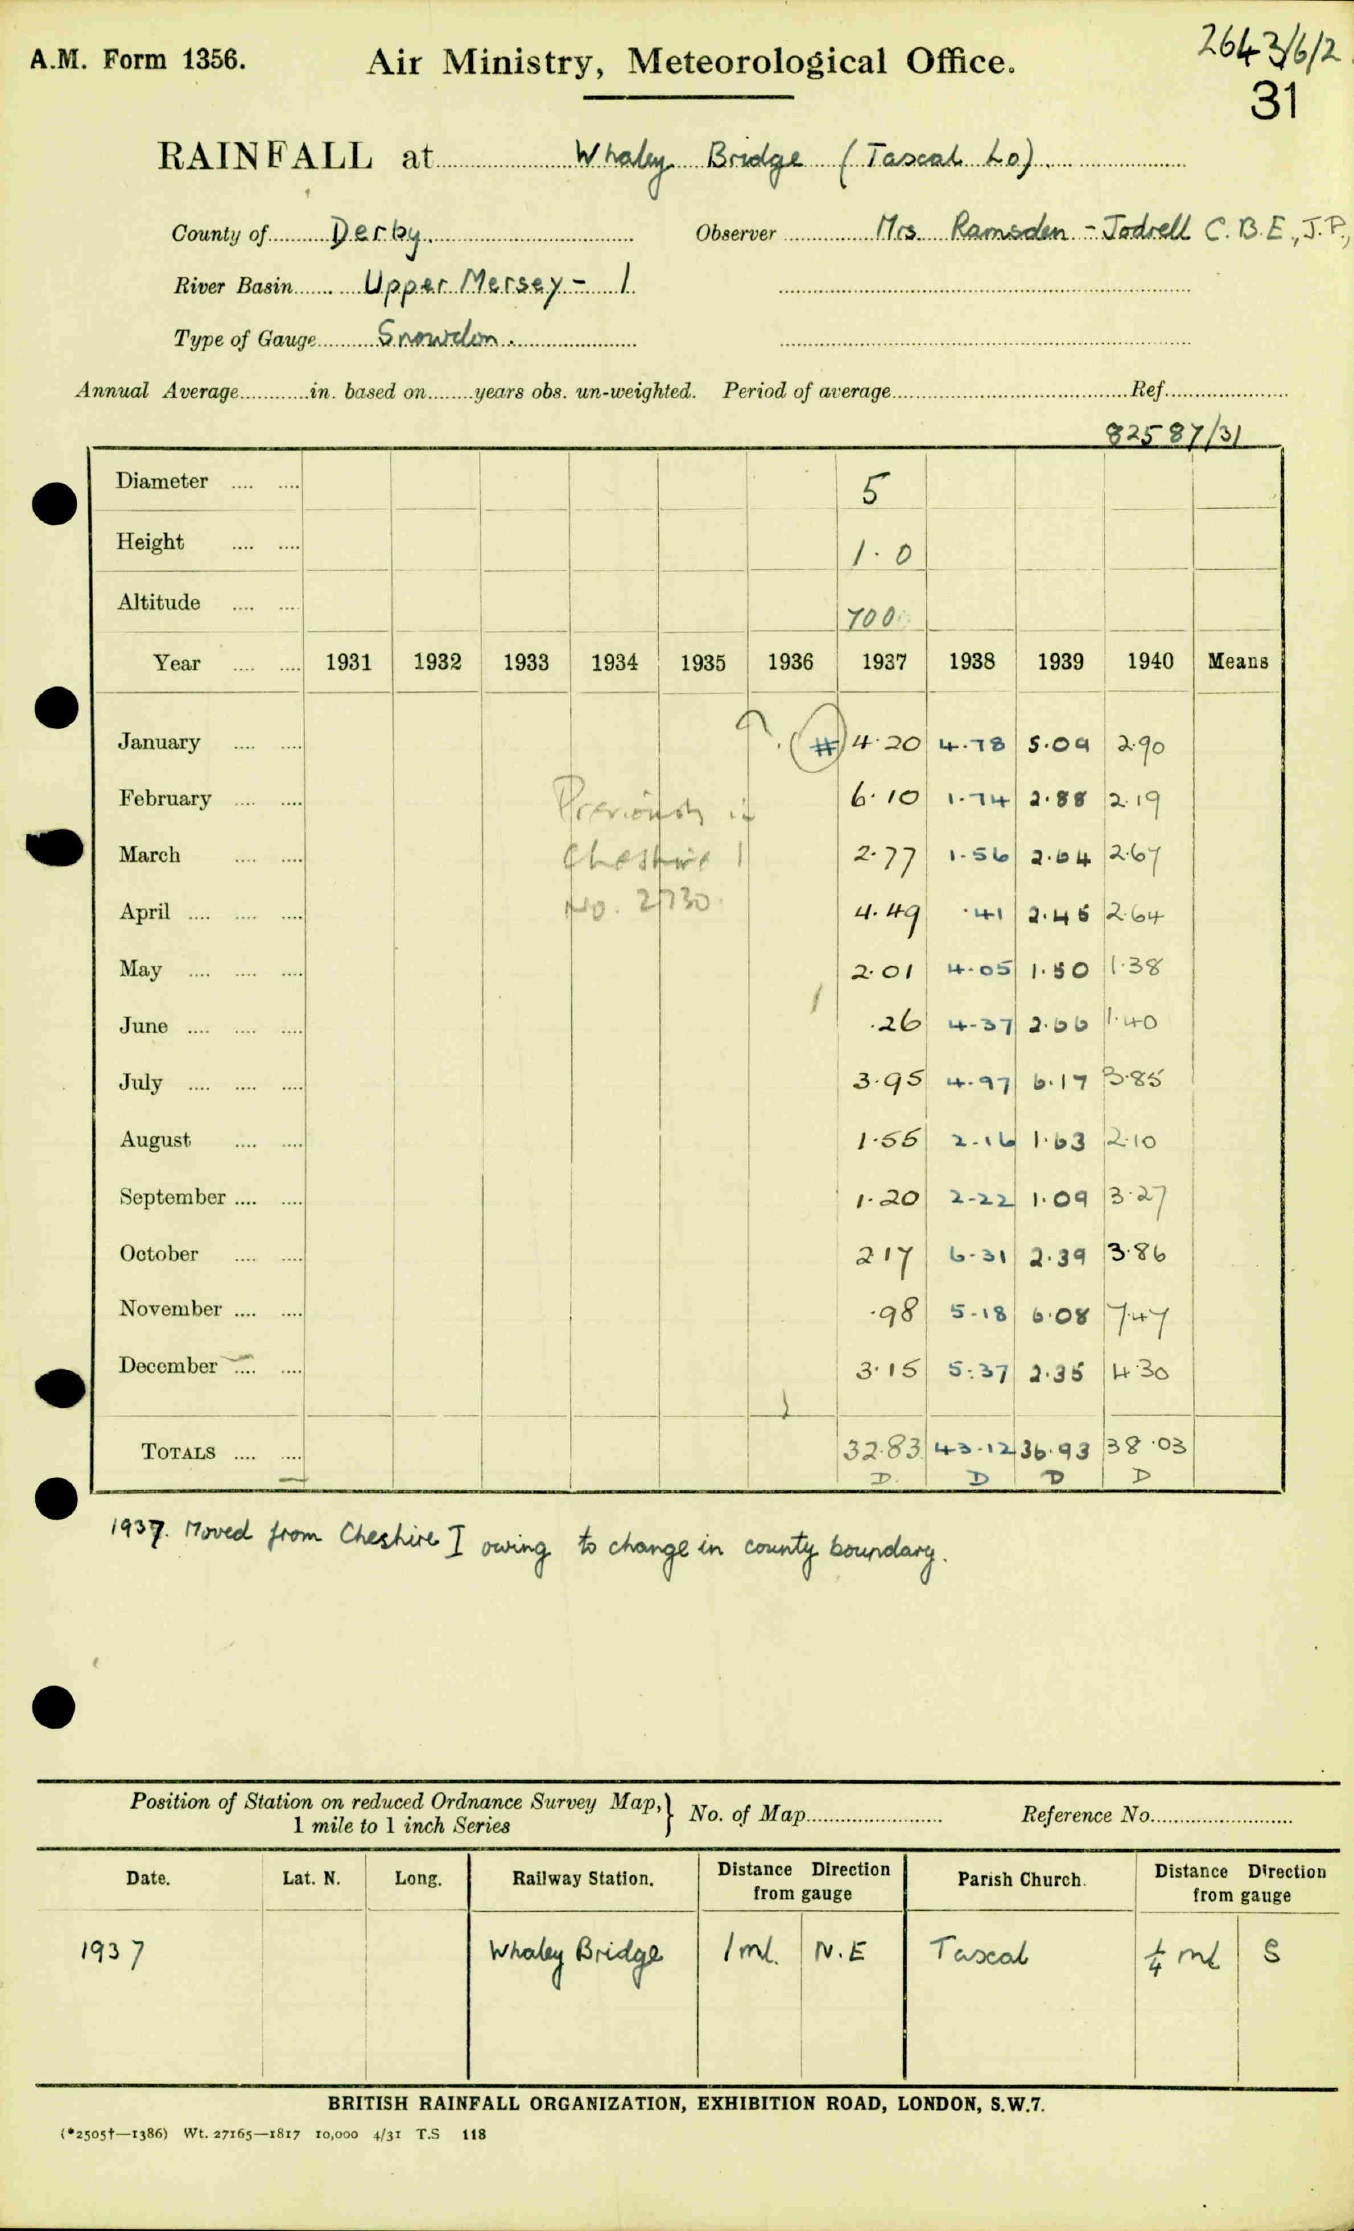 2643/6/2
A.M. Form 1356. Air Ministry, Meteorological Office.
31
RAINFALL at Whaley Bridge (Taxal Lo).
County of Derby. Observer Mrs. Ramsden-Jodrell C.B.E., J.P.,
River Basin Upper Mersey - 1
Type of Gauge Snowdon.
Annual Average in. based on years obs. un-weighted. Period of average Ref.
82587/31
Diameter 5
Height 1.0
Altitude 700
Year 1931 1932 1933 1934 1935 1936 1937 1938 1939 1940 Means
January ? (#) 4.20 4.78 5.09 2.90
February 6.10 1.74 2.88 2.19
Previously in
March 2.77 1.56 2.64 2.67
Cheshire 1
April 4.49 .41 2.45 2.64
No. 2730.
May 2.01 4.05 1.50 1.38
June .26 4.37 2.66 1.40
July 3.95 4.97 6.17 3.85
August 1.55 2.16 1.63 2.10
September 1.20 2.22 1.09 3.27
October 2.17 6.31 2.39 3.86
November .98 5.18 6.08 7.47
December 3.15 5.37 2.35 4.30
TOTALS 32.83 43.12 36.93 38.03
D. D D D
1937. Moved from Cheshire I owing to change in county boundary.
Position of Station on reduced Ordnance Survey Map, } No. of Map Reference No.
1 mile to 1 inch Series
Date. Lat. N. Long. Railway Station. Distance Direction from gauge Parish Church. Distance Direction from gauge
1937 Whaley Bridge 1 ml. N.E Taxal ¼ ml S
BRITISH RAINFALL ORGANIZATION, EXHIBITION ROAD, LONDON, S.W.7.
(*2505†—1386) Wt. 27165—1817 10,000 4/31 T.S 118